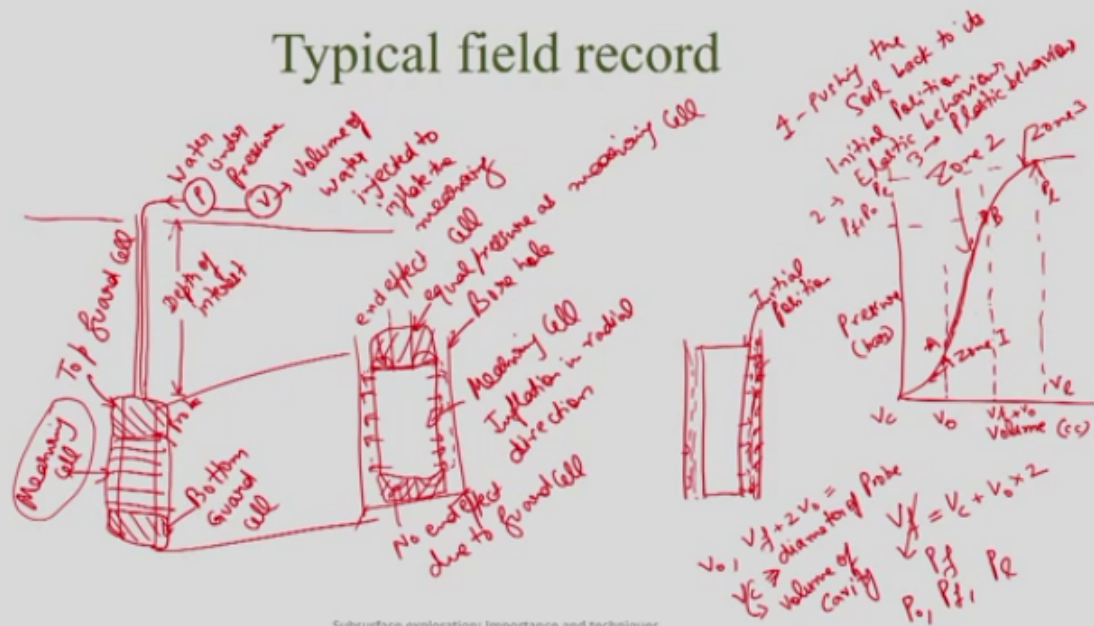 Typical field record
Water
under
Pressure
P
V
Volume of
water
injected to
inflate the
measuring
Cell
Top guard Cell
Depth of
interest
Probe
Measuring
Cell
Bottom
Guard
Cell
end effect
equal pressure as measuring Cell
Bore hole
Measuring Cell
Inflation in radial
direction
No end effect
due to guard Cell
Initial
Position
1 - Pushing the
Soil back to its
Initial Position
2 → Elastic behaviour
3 → Plastic behaviour
Zone 2
Zone 3
Zone I
A
B
Pressure
Volume (cc)
diameter of Probe
volume of
cavity
Subsurface exploration: Importance and techniques